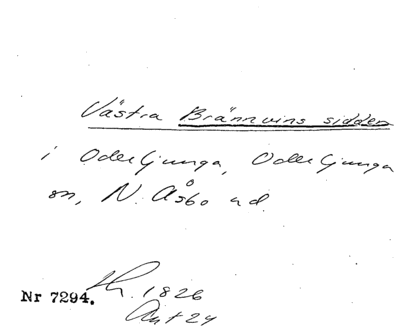 Västra Brännvins sidden
i Oderljunga, Oderljunga
sn, N. Åsbo hd.
Nr 7294. h. 1826
Ant 24